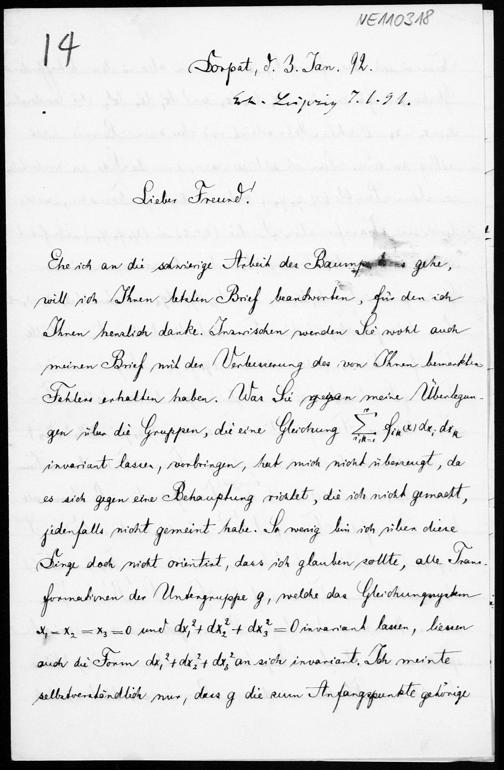 NE110318
14
Dorpat, d. 3. Jan. 92.
Erh. Leipzig 7.1.91.
Lieber Freund!
Ehe ich an die schwierige Arbeit des gehe,
will ich Ihren letzten Brief beantworten, für den ich
Ihnen herzlich danke. Inzwischen werden Sie wohl auch
meinen Brief mit der Verbesserung des von Ihnen bemerkten
Fehlers erhalten haben. Was Sie gegen meine Überlegun-
gen über die Gruppen, die eine Gleichung ∑ f_{ik}(x) dx_i dx_k
invariant lassen, vorbringen, hat mich nicht überzeugt, da
es sich gegen eine Behauptung richtet, die ich nicht gemacht,
jedenfalls nicht gemeint habe. So wenig bin ich über diese
Dinge doch nicht orientirt, dass ich glauben sollte, alle Trans-
formationen der Untergruppe g, welche das Gleichungssystem
x₁ = x₂ = x₃ = 0 und dx₁² + dx₂² + dx₃² = 0 invariant lassen, liessen
auch die Form dx₁² + dx₂² + dx₃² an sich invariant. Ich meinte
selbstverständlich nur, dass g die zum Anfangspunkte gehörige